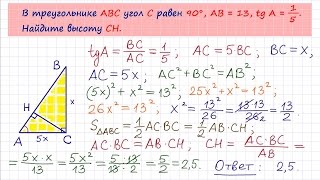 В треугольнике ABC угол C равен 90°, AB = 13, tg A = 1/5.
Найдите высоту CH.
tgA = BC/AC = 1/5, AC = 5·BC, BC = x,
AC = 5x, AC² + BC² = AB²,
(5x)² + x² = 13², 25x² + x² = 13²,
26x² = 13², x² = 13²/26 = 13·13/13·2 = 13/2
S△ABC = 1/2 AC·BC = 1/2 AB·CH;
AC·BC = AB·CH, CH = AC·BC/AB =
= 5x·x/13 = 5x²/13 = 5·13/13·2 = 5/2 = 2,5. Ответ: 2,5.
B
x
H
A
5x
C